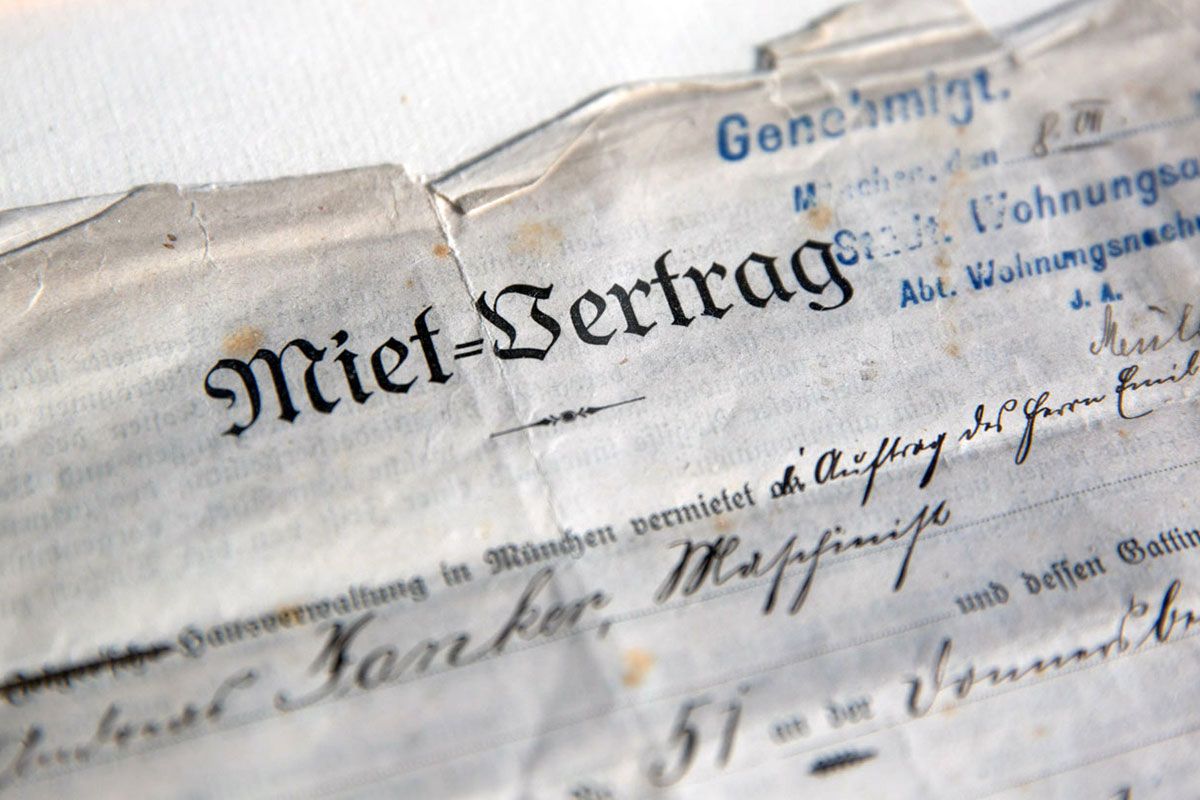 Genehmigt.
München, den 8. VII.
Städt. Wohnungsa
Abt. Wohnungsnachw
J. A.
Miet=Vertrag
Hausverwaltung in München vermietet im Auftrag des Herrn Emil
Andreas Janker, Maschinist
und dessen Gattin
51 an der Donnersbe